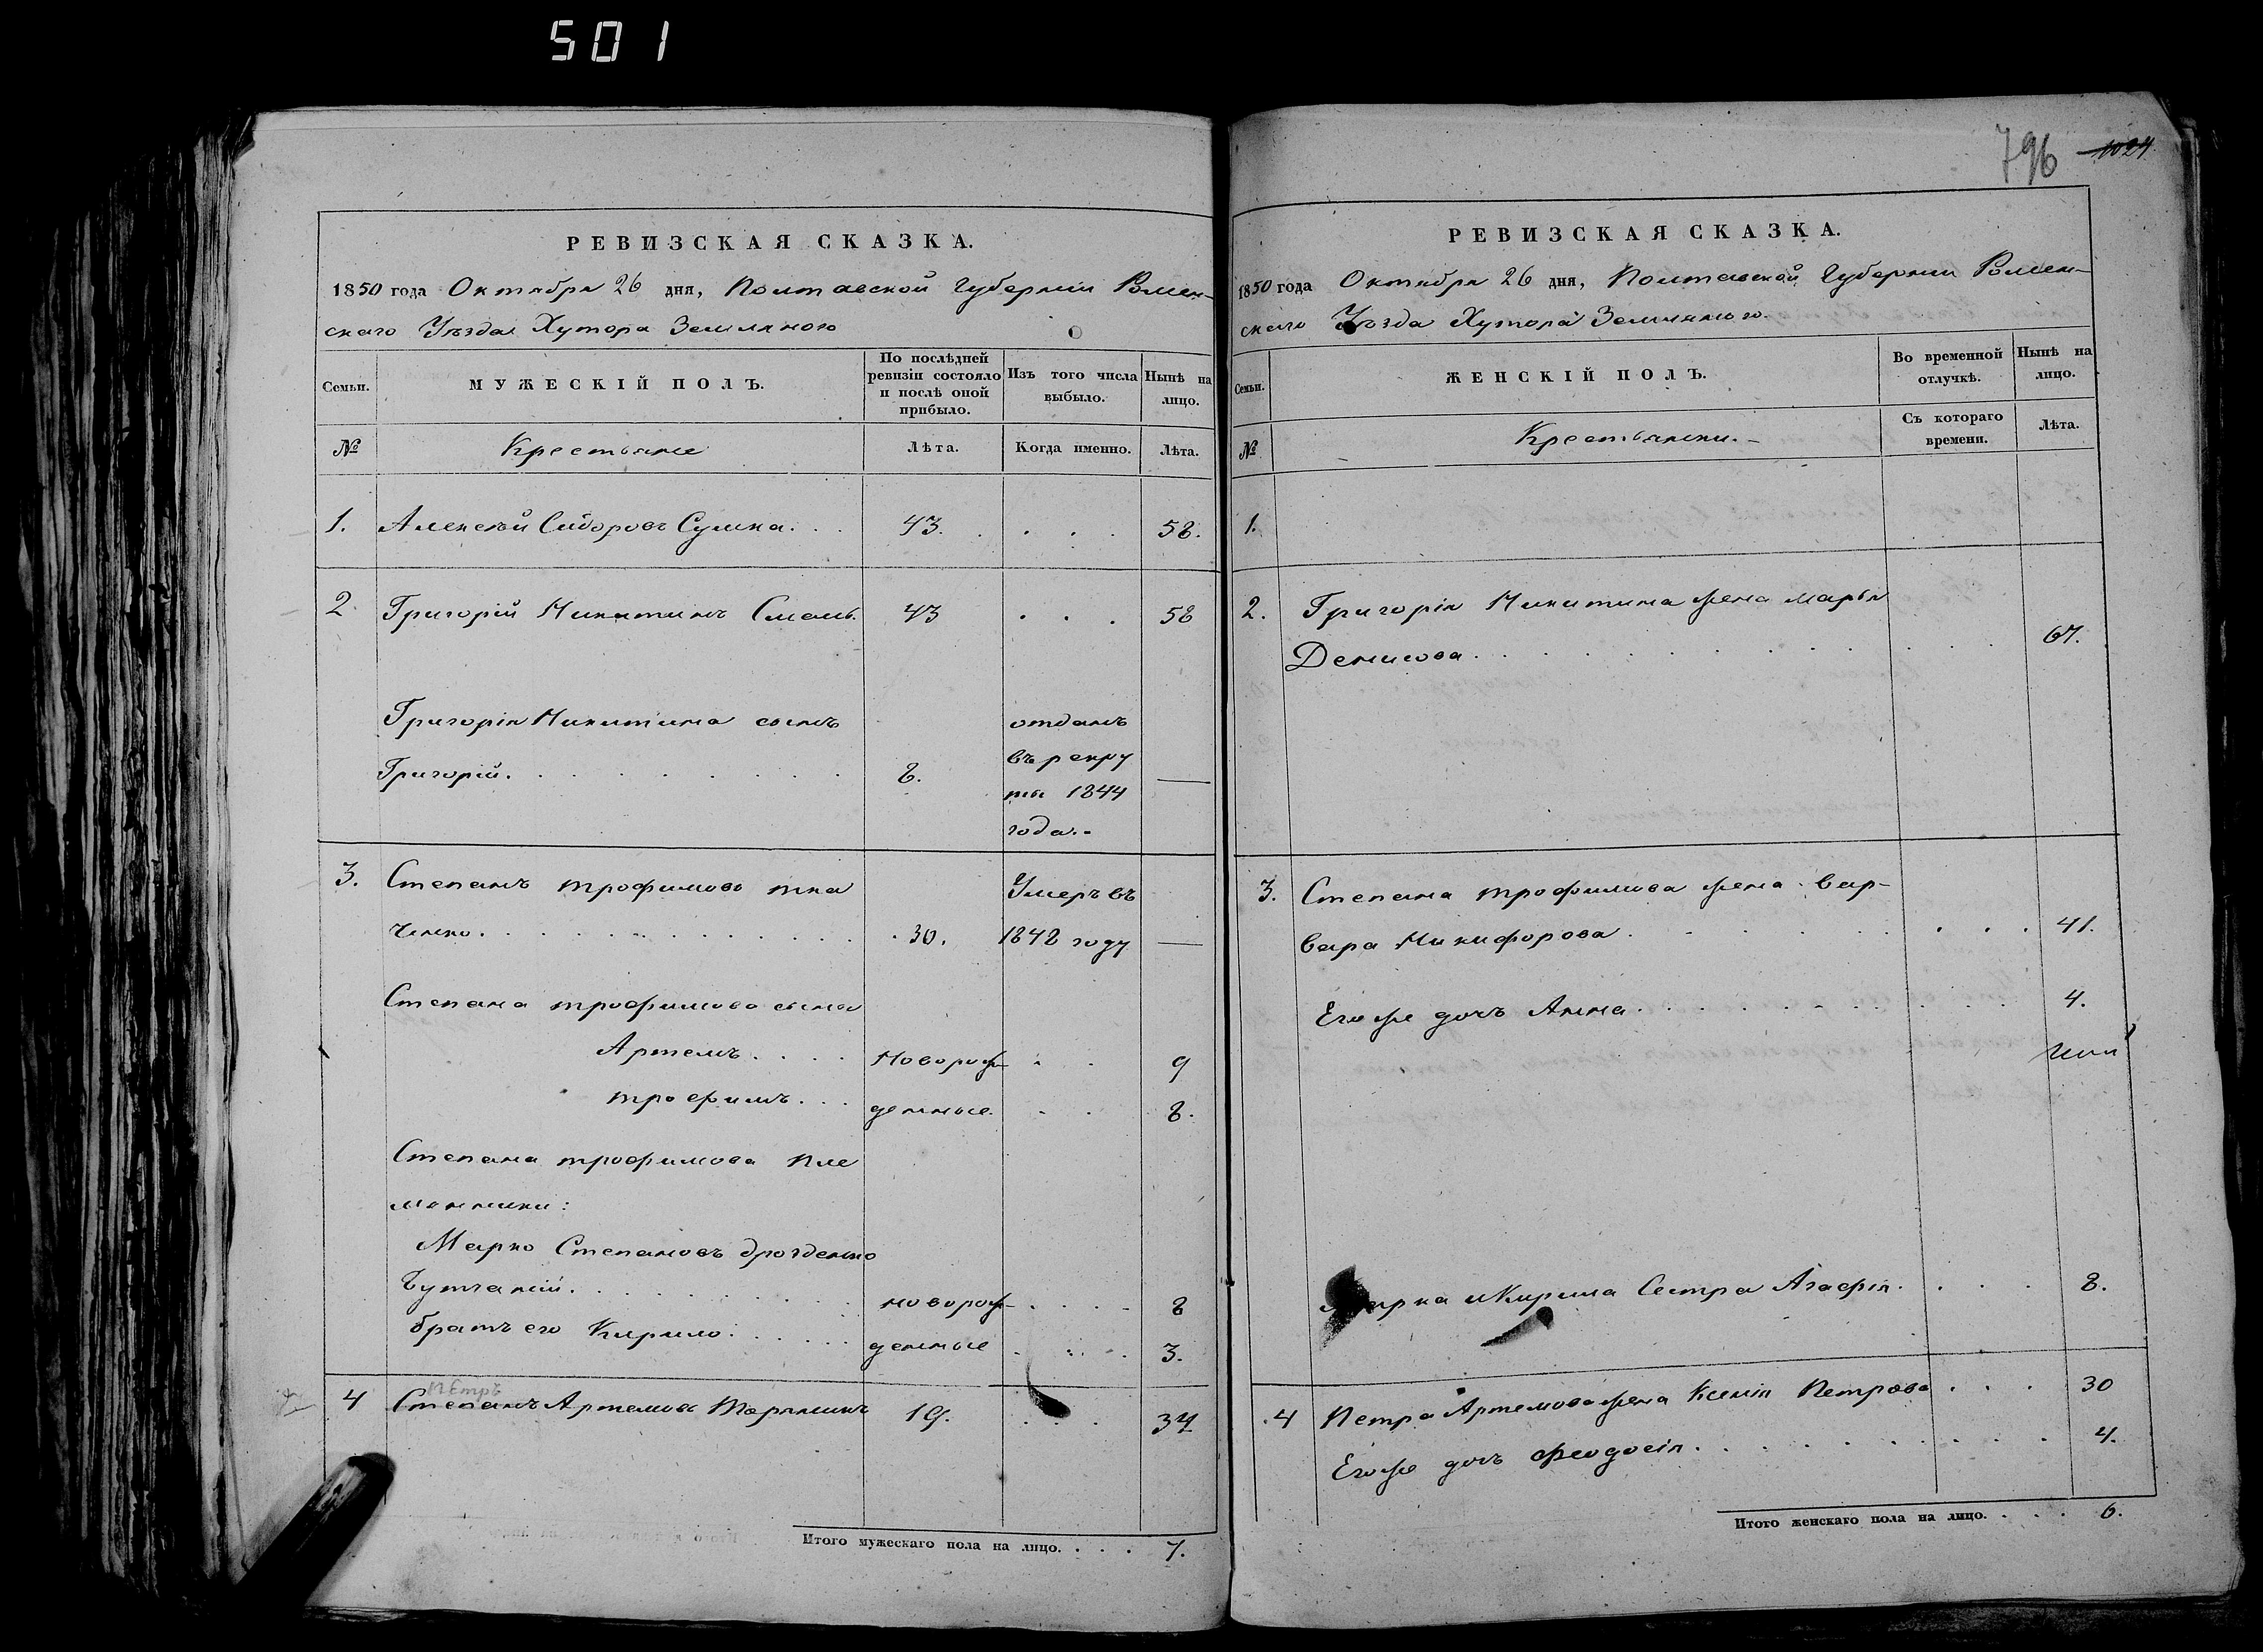 501
РЕВИЗСКАЯ СКАЗКА.
1850 года Октября 26 дня, Полтавской Губерніи Ромен-
скаго Уѣзда Хутора Землянаго
Семьи.
МУЖЕСКІЙ ПОЛЪ.
По послѣдней ревизіи состояло и послѣ оной прибыло.
Изъ того числа выбыло.
Нынѣ на лицо.
№
Крестьяне
Лѣта.
Когда именно.
Лѣта.
1. Алексѣй Сидоровъ Сумка. . . 43. . . . . 58.
2. Григорій Никитинъ 43 . . . 58
Григорія Никитина сынъ отданъ
Григорій. . . . . . . . . 8. въ рекру
ты 1844 —
года.-
3. Степанъ трофимовъ тка Умеръ въ
ченко. . . . . . . . . . 30. 1848 году —
Степана трофимова сыны
Артемъ. . . . новорож- . . 9
трофимъ. . . денные. . . 8.
Степана трофимова пле
мянники:
Марко Степановъ
. . . . . . . . новорож- . . . . 8
братъ его Кирило. . . . . денные . . . . 3.
Петръ
4 Степанъ Артемовъ 19. . . . 34
Итого мужескаго пола на лицо. . . . 7.
796 1024
РЕВИЗСКАЯ СКАЗКА.
1850 года Октября 26 дня, Полтавской Губерніи Ромен-
скаго Уѣзда Хутора Землянаго.
Семьи.
ЖЕНСКІЙ ПОЛЪ.
Во временной отлучкѣ.
Нынѣ на лицо.
№
Крестьянки.-
Съ котораго времени.
Лѣта.
1.
2. Григорія Никитина жена марья
Денисова. . . . . . . . . . . . . 67.
3. Степана трофимова жена вар-
вара Никифорова. . . . . . . . . 41.
Егоже дочь Анна. . . . . . . . . 4.
Марка и Кирила Сестра Агафія. . . . 8.
4 Петра Артемова жена Ксенія Петрова . . . 30
Егоже дочь феодосія. . . . . . . . . 4.
Итого женскаго пола на лицо. . . . 6.